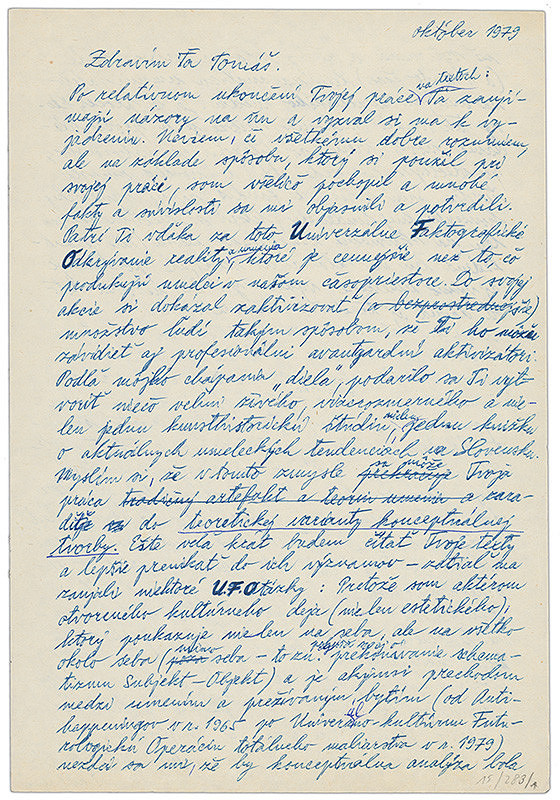 október 1979
Zdravím Ťa Tomáš.
Po relatívnom ukončení Tvojej práce na textoch: Ťa zaují-
majú názory na ňu a vyzval si ma k vy-
jadreniu. Neviem, či všetkému dobre rozumiem,
ale na základe spôsobu, ktorý si použil pri
svojej práci, som všeličo pochopil a mnohé
fakty a súvislosti sa mi objasnili a potvrdili.
Patrí Ti vďaka za toto Univerzálne Faktografické
Odkrývanie reality a umenia, ktoré je cennejšie než to čo
produkujú umelci v našom časopriestore. Do svojej
akcie si dokázal zaktivizovať (a bezprostrednejšie)
množstvo ľudí takým spôsobom, že Ti ho môžu
závidieť aj profesionálni avantgardní aktivizátori.
Podľa môjho chápania „diela", podarilo sa Ti vyt-
voriť niečo veľmi živého, viacrozmerného a nie-
len jednu kunsthistorickú štúdiu, jednu knižku
o aktuálnych umeleckých tendenciach na Slovensku.
Myslím si, že v tomto zmysle prekračuje sa môže Tvoja
práca tradičný artefakt a teóriu umenia a zara-
diť do teoretickej varianty konceptuálnej
tvorby. Ešte veľa krát budem čítať Tvoje texty
a lepšie prenikať do ich významov – zatiaľ ma
zaujali niektoré U.F.Otázky: Pretože som aktérom
otvoreného kultúrneho deja (nielen estetického),
ktorý poukazuje nielen na seba, ale na všetko
okolo seba (mimo seba – to zn. prekonávanie schema-
tizmu Subjekt–Objekt) a je akýmsi prechodom
medzi umením a prežívaným bytím (od Anti-
happeningov v r. 1965 po Univerzálno-kultúrnu Futu-
rologickú Operáciu totálneho maliarstva v r. 1979)
nezdá sa mi, že by konceptuálna analýza bola
15/283/1